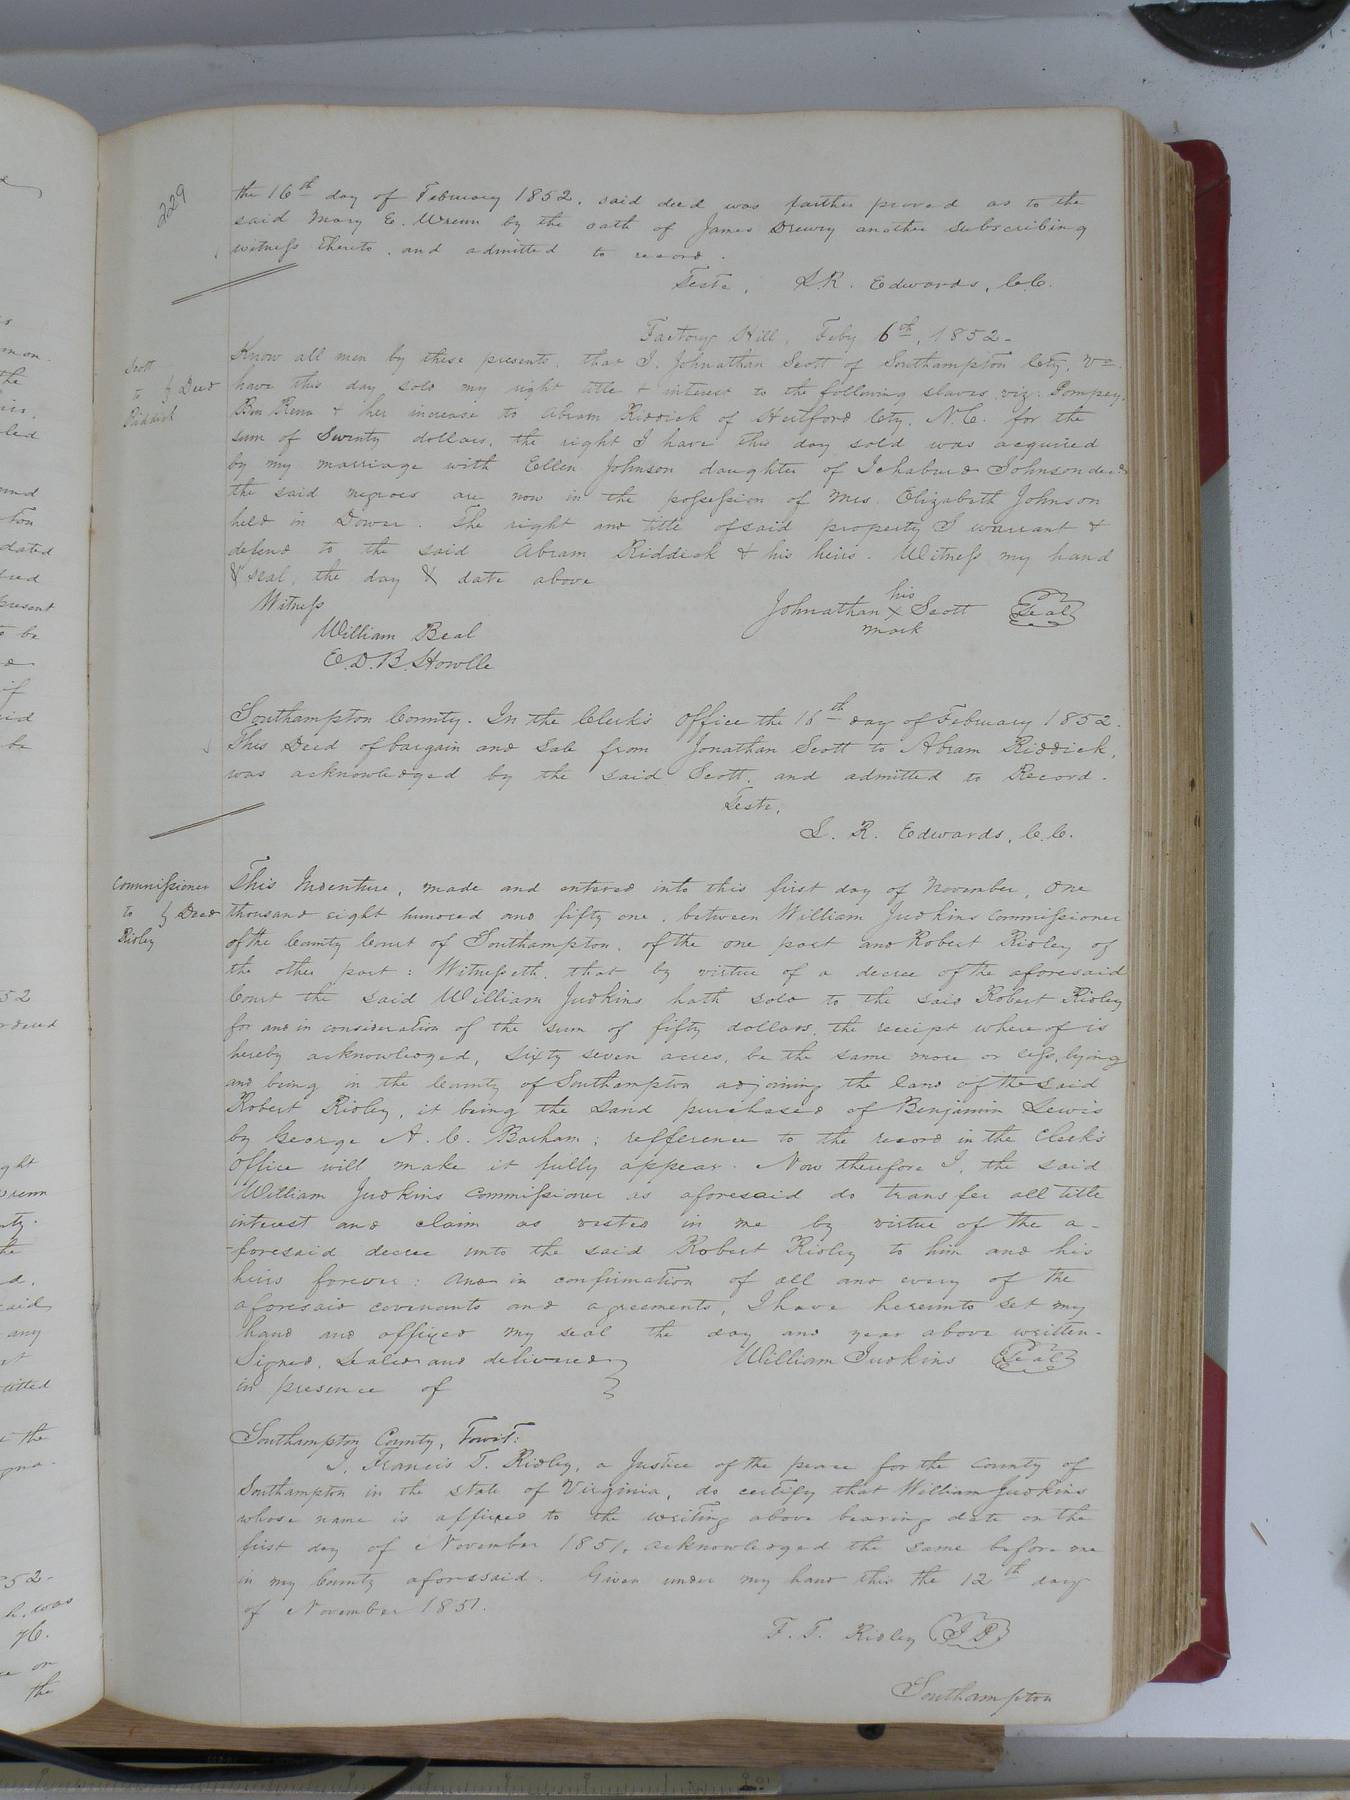 229
the 16th day of February 1852. said deed was farther proved as to the
said Mary E. Wrenn by the oath of James Drewry another subscribing
witness thereto. and admitted to record.
Teste, L.R. Edwards, C.C.
Factory Hill, Feby 6th, 1852-
Scott
to } Deed
Riddick
Know all men by these presents. that I. Johnathan Scott of Southampton Cty, Va.
have this day sold my right title & interest to the following slaves viz: Pompey,
Rena & her increase to Abram Riddick of Hertford Cty. N.C. for the
sum of Twenty dollars, the right I have this day sold was acquired
by my marriage with Ellen Johnson daughter of Ichabud Johnson decd
the said negroes are now in the possession of Mrs. Elizabeth Johnson
held in Dower. The right and title of said property I warrant &
defend to the said Abram Riddick & his heirs. Witness my hand
& seal, the day & date above
Witness
Johnathan his X mark Scott Seal
William Beal
E.D.B. Howlle
Southampton County. In the Clerk's Office the 16th day of February 1852.
This Deed of bargain and sale from Jonathan Scott to Abram Riddick,
was acknowledged by the said Scott. and admitted to Record.
Teste,
L. R. Edwards, C.C.
Commissioner
to } Deed
Ridley
This Indenture, made and entered into this first day of November, One
thousand eight hundred and fifty one. between William Judkins Commissioner
of the County Court of Southampton. of the one part and Robert Ridley of
the other part: Witnesseth. that by virtue of a decree of the aforesaid
Court the said William Judkins hath sold to the said Robert Ridley
for and in consideration of the sum of fifty dollars, the receipt where of is
hereby acknowledged, sixty seven acres, be the same more or less, lying
and being in the County of Southampton adjoining the land of the said
Robert Ridley, it being the Land purchased of Benjamin Lewis
by George A. C. Barham; refference to the record in the Clerk's
Office will make it fully appear. Now therefore I, the said
William Judkins Commissioner as aforesaid do transfer all title
interest and claim as vested in me by virtue of the a-
-foresaid decree unto the said Robert Ridley to him and his
heirs forever: And in confirmation of all and every of the
aforesaid covenants and agreements, I have hereunto set my
hand and affixed my seal the day and year above written-
Signed, Sealed and delivered } William Judkins Seal
in presence of
Southampton County, Towit:
I, Francis T. Ridley, a Justice of the peace for the County of
Southampton in the state of Virginia, do certify that William Judkins
whose name is affixed to the writing above bearing date on the
first day of November 1851, acknowledged the same before me
in my County aforesaid. Given under my hand this the 12th day
of November 1851.
F. T. Ridley J P
Southampton